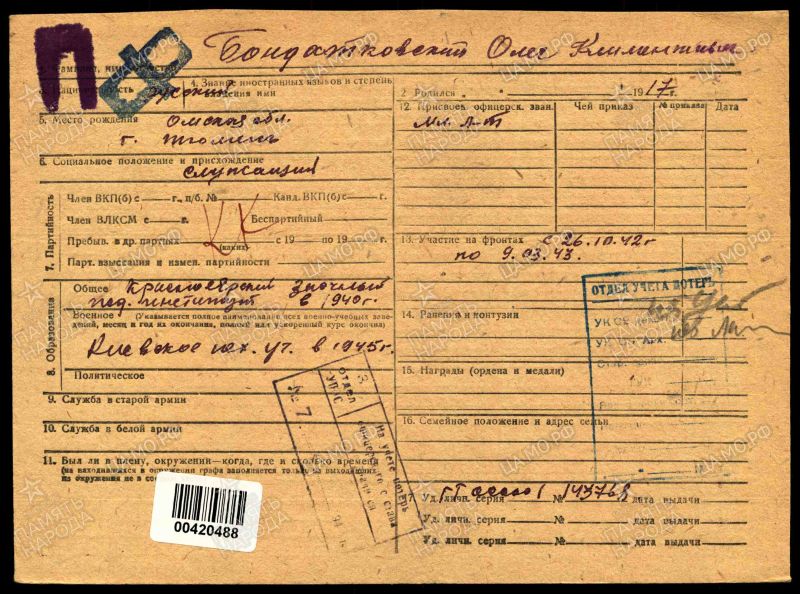 П
Бондатковский Олег Климентьев
1. Фамилия, имя, отчество
3. Национальность русский
4. Знание иностранных языков и степень владения ими
2 Родился " " 1917 г.
5. Место рождения Омская обл.
г. Тюмень
12. Присвоен. офицерск. зван. Чей приказ № приказа Дата
Мл. л-т
6. Социальное положение и происхождение
служащий
7. Партийность
Член ВКП(б) с — г., п/б. № Канд. ВКП(б) с — г.
Член ВЛКСМ с — г. Беспартийный
Пребыв. в др. партиях (каких) с 19 по 19 г.
Парт. взыскания и измен. партийности
13. Участие на фронтах с 26.10.42 г
по 9.03.43.
8. Образование
Общее Красноярский заочный
пед. институт в 1940 г.
Военное (Указывается полное наименование всех военно-учебных заведений, месяц и год их окончания, полный или ускоренный курс окончил)
Киевское пех. уч. в 1945 г.
Политическое
ОТДЕЛ УЧЕТА ПОТЕРЬ
14. Ранения и контузии
15. Награды (ордена и медали)
9. Служба в старой армии
10. Служба в белой армии
16. Семейное положение и адрес семьи
11. Был ли в плену, окружении—когда, где и сколько времени
(на находившихся в окружении графа заполняется только на выходящих из окружения не в со
3. отдел
УПКС
На учете потерь
№ 7
17 Уд. личн. серия № 143768 дата выдачи
Уд. личн. серия № дата выдачи
Уд. личн. серия № дата выдачи
00420488
ПАМЯТЬ НАРОДА
ЦАМО.РФ